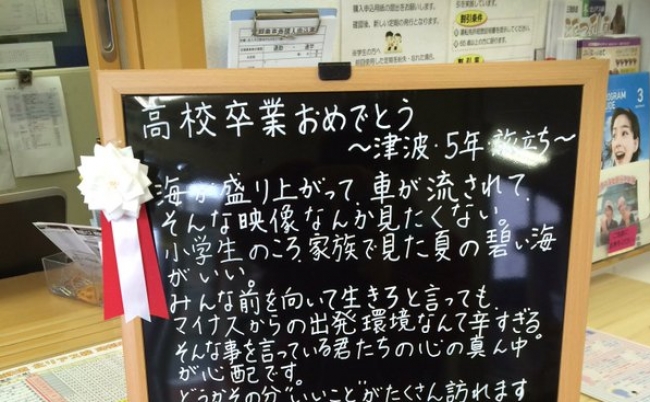 高校卒業おめでとう
～津波・5年・旅立ち～
海が盛り上がって、車が流されて、
そんな映像なんか見たくない。
小学生のころ、家族で見た夏の碧い海
がいい。
みんな前を向いて生きろと言っても、
マイナスからの出発環境なんて辛すぎる。
そんな事を言っている君たちの心の真ん中
が心配です。
どうかその分“いいこと”がたくさん訪れます
割引条件
3